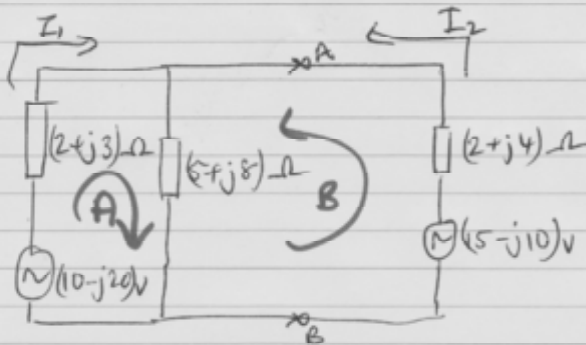 I₁
I₂
A
(2+j3)Ω
(6+j8)Ω
(2+j4)Ω
A
B
(10-j20)v
(15-j10)v
B